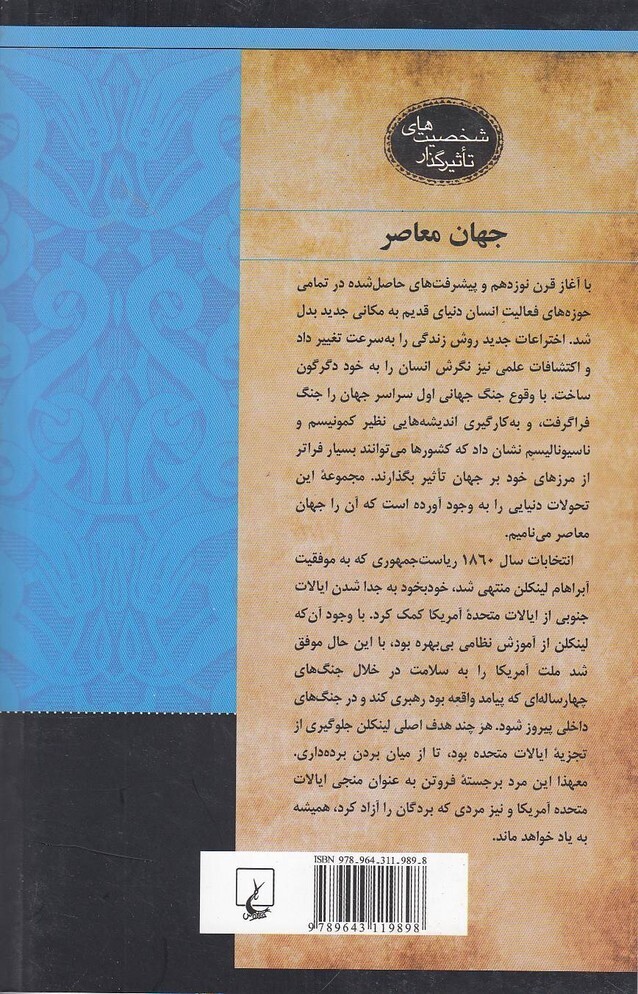 شخصیت‌های
تأثیرگذار
جهان معاصر
با آغاز قرن نوزدهم و پیشرفت‌های حاصل‌شده در تمامی
حوزه‌های فعالیتِ انسان دنیای قدیم به مکانی جدید بدل
شد. اختراعات جدید روش زندگی را به‌سرعت تغییر داد
و اکتشافات علمی نیز نگرش انسان را به خود دگرگون
ساخت. با وقوع جنگ جهانی اول سراسر جهان را جنگ
فراگرفت، و به‌کارگیری اندیشه‌هایی نظیر کمونیسم و
ناسیونالیسم نشان داد که کشورها می‌توانند بسیار فراتر
از مرزهای خود بر جهان تأثیر بگذارند. مجموعهٔ این
تحولات دنیایی را به وجود آورده است که آن را جهان
معاصر می‌نامیم.
انتخابات سال ۱۸۶۰ ریاست‌جمهوری که به موفقیت
آبراهام لینکلن منتهی شد، خودبخود به جدا شدن ایالات
جنوبی از ایالات متحدهٔ آمریکا کمک کرد. با وجود آن‌که
لینکلن از آموزش نظامی بی‌بهره بود، با این حال موفق
شد ملت آمریکا را به سلامت در خلال جنگ‌های
چهارساله‌ای که پیامد واقعه بود رهبری کند و در جنگ‌های
داخلی پیروز شود. هر چند هدف اصلی لینکلن جلوگیری از
تجزیهٔ ایالات متحده بود، تا از میان بردن برده‌داری.
معهذا این مرد برجستهٔ فروتن به عنوان منجی ایالات
متحده آمریکا و نیز مردی که بردگان را آزاد کرد، همیشه
به یاد خواهد ماند.
ISBN 978-964-311-989-8
9 789643 119898